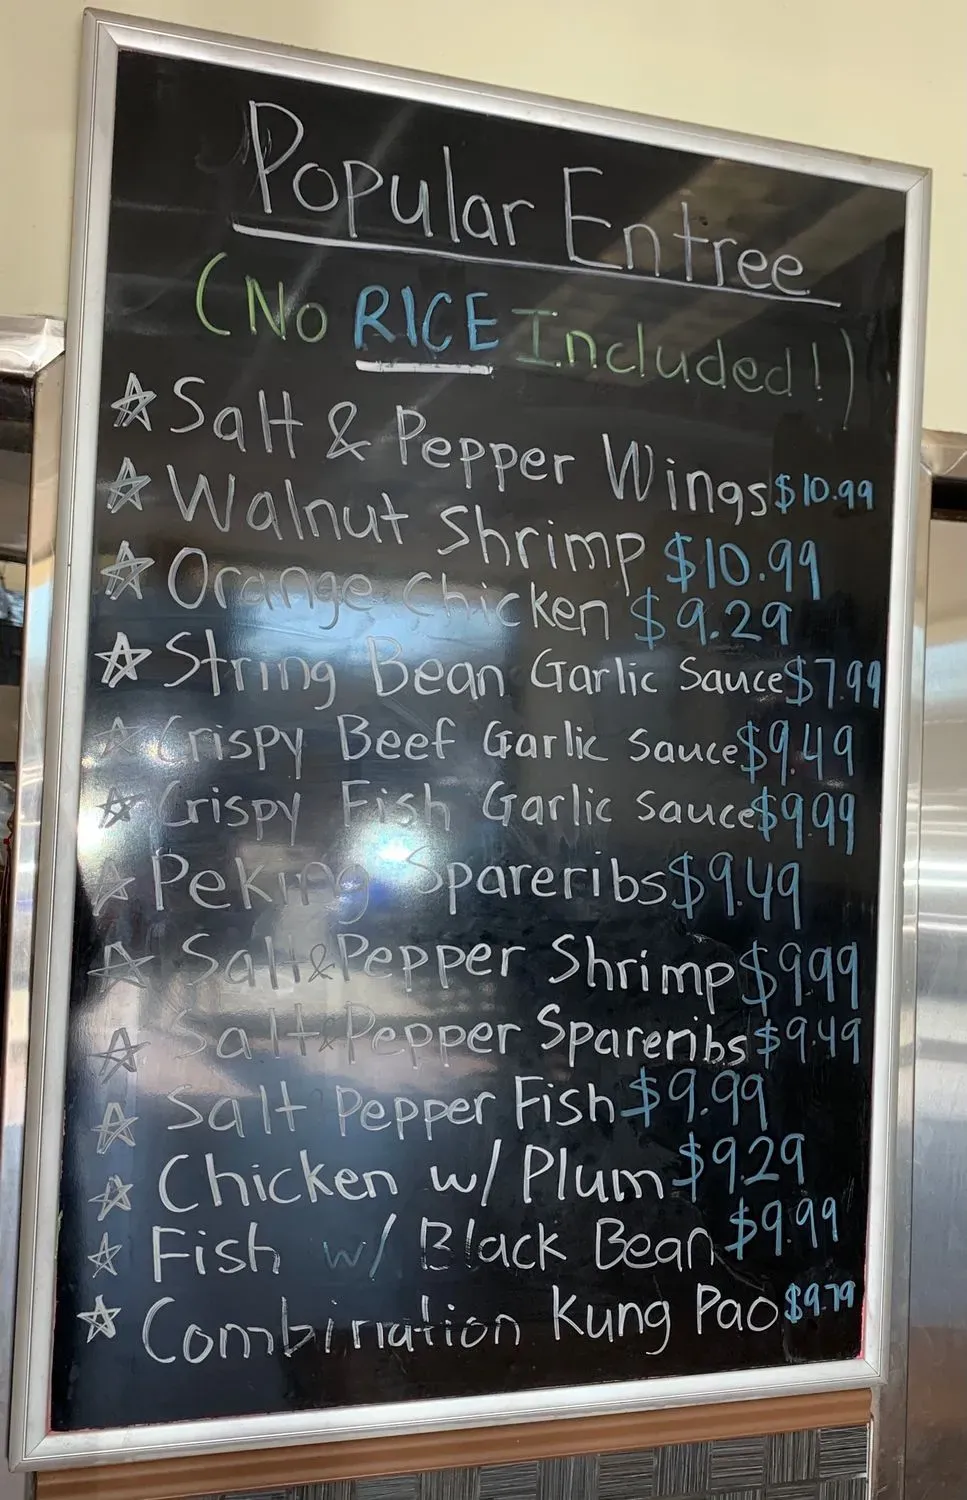 Popular Entree
(No RICE Included!)
☆ Salt & Pepper Wings $10.99
☆ Walnut Shrimp $10.99
☆ Orange Chicken $9.29
☆ String Bean Garlic Sauce $7.99
☆ Crispy Beef Garlic Sauce $9.49
☆ Crispy Fish Garlic Sauce $9.99
☆ Peking Spareribs $9.49
☆ Salt & Pepper Shrimp $9.99
☆ Salt & Pepper Spareribs $9.49
☆ Salt Pepper Fish $9.99
☆ Chicken w/ Plum $9.29
☆ Fish w/ Black Bean $9.99
☆ Combination Kung Pao $9.79